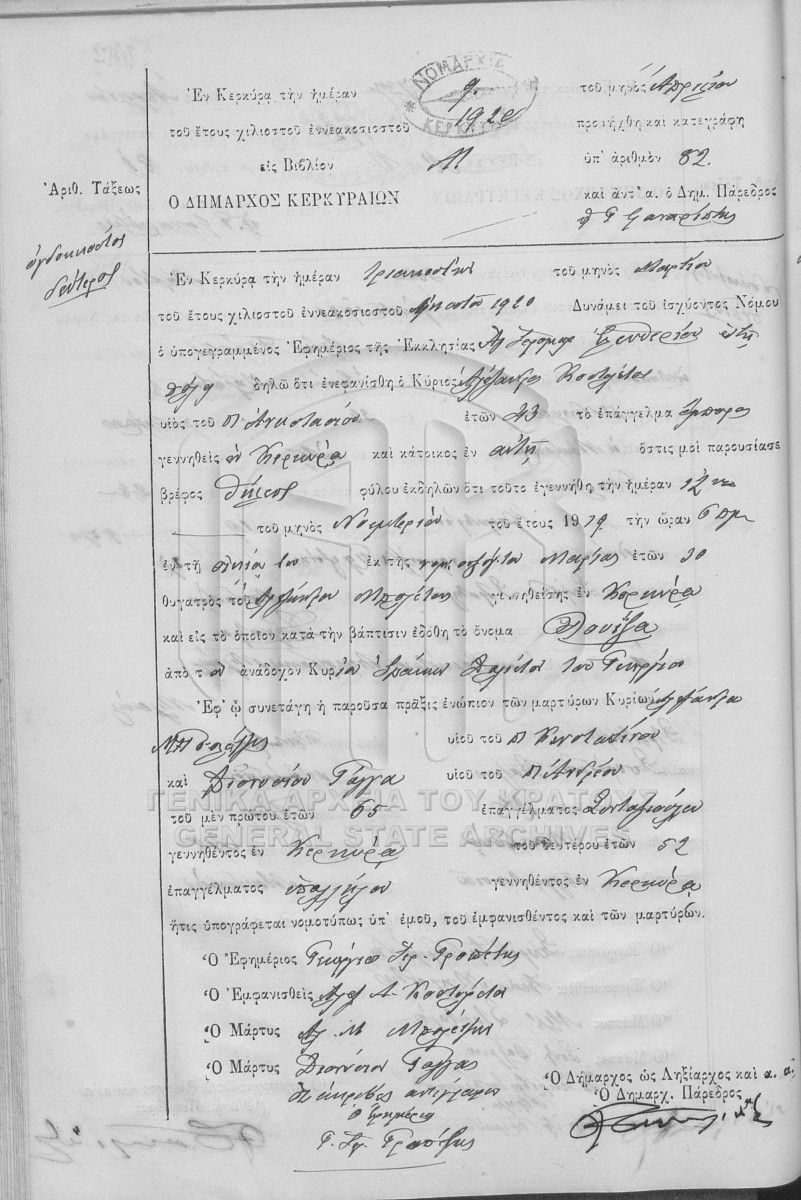 ΝΟΜΑΡΧΙΑ
ΚΕΡΚΥΡΑΣ
Ἐν Κερκύρᾳ τὴν ἡμέραν 9 τοῦ μηνὸς Ἀπριλίου
τοῦ ἔτους χιλιοστοῦ ἐννεακοσιοστοῦ 1920 προσήχθη καὶ κατεγράφη
εἰς Βιβλίον Μ ὑπ' ἀριθμὸν 82.
Ἀριθ. Τάξεως
Ο ΔΗΜΑΡΧΟΣ ΚΕΡΚΥΡΑΙΩΝ καὶ ἀντ' α. ὁ Δημ. Πάρεδρος
ὀγδοηκοστὸς
δεύτερος
Ἐν Κερκύρᾳ τὴν ἡμέραν τριακοστὴν τοῦ μηνὸς Μαρτίου
τοῦ ἔτους χιλιοστοῦ ἐννεακοσιοστοῦ εἰκοστοῦ 1920 Δυνάμει τοῦ ἰσχύοντος Νόμου
ὁ ὑπογεγραμμένος Ἐφημέριος τῆς Ἐκκλησίας Ἐλευθερίου
πόλει δηλῶ ὅτι ἐνεφανίσθη ὁ Κύριος Ἀλέξανδρος
υἱὸς τοῦ Π Ἀναστασίου ἐτῶν 43 τὸ ἐπάγγελμα ἔμπορος
γεννηθεὶς ἐν Κερκύρᾳ καὶ κάτοικος ἐν αὐτῇ ὅστις μοὶ παρουσίασε
βρέφος θήλεος φύλου ἐκδηλῶν ὅτι τοῦτο ἐγεννήθη τὴν ἡμέραν 12
τοῦ μηνὸς Νοεμβρίου τοῦ ἔτους 1919 τὴν ὥραν 6 πμ
ἐν τῇ οἰκίᾳ του ἐκ τῆς συζύγου του Μαρίας ἐτῶν 30
θυγατρὸς τοῦ Ἀλεξάνδρου γεννηθείσης ἐν Κερκύρᾳ
καὶ εἰς τὸ ὁποῖον κατὰ τὴν βάπτισιν ἐδόθη τὸ ὄνομα Λουΐζα
ἀπὸ τὸν ἀνάδοχον Κύριον τοῦ Γεωργίου
Ἐφ' ᾧ συνετάγη ἡ παροῦσα πρᾶξις ἐνώπιον τῶν μαρτύρων Κυρίων Ἀλεξάνδρου
υἱοῦ τοῦ Π Κωνσταντίνου
καὶ Διονυσίου Γάγγα υἱοῦ τοῦ Π Ἀνδρέου
ΓΕΝΙΚΑ ΑΡΧΕΙΑ ΤΟΥ ΚΡΑΤΟΥΣ
τοῦ μὲν πρώτου ἐτῶν 65 ἐπαγγέλματος Συνταξιούχου
GENERAL STATE ARCHIVES
γεννηθέντος ἐν Κερκύρᾳ τοῦ δευτέρου ἐτῶν 52
ἐπαγγέλματος ὑπαλλήλου γεννηθέντος ἐν Κερκύρᾳ
ἥτις ὑπογράφεται νομοτύπως ὑπ' ἐμοῦ, τοῦ ἐμφανισθέντος καὶ τῶν μαρτύρων.
Ὁ Ἐφημέριος Γεώργιος
Ὁ Ἐμφανισθεὶς Αλεξ Α.
Ὁ Μάρτυς Αλ. Μ
Ὁ Μάρτυς Διονύσιος Γάγγας
ἀκριβὲς ἀντίγραφον
Ὁ Ἐφημέριος
Ὁ Δήμαρχος ὡς Ληξίαρχος καὶ α. α.
Ὁ Δημαρχ. Πάρεδρος